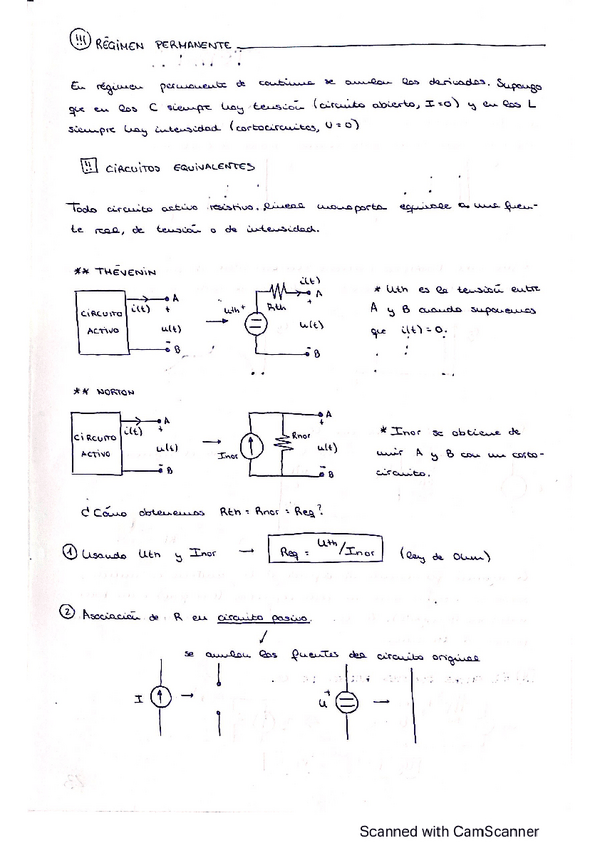 !!! RÉGIMEN PERMANENTE
En régimen permanente de continua se anulan las derivadas. Supongo
que en los C siempre hay tensión (circuito abierto, I=0) y en las L
siempre hay intensidad (cortocircuitos, U=0)
!! CIRCUITOS EQUIVALENTES
Todo circuito activo resistivo. Lineal monoporta equivale a una fuen-
te real, de tensión o de intensidad.
** THÉVENIN
CIRCUITO
ACTIVO
i(t)
A
+
u(t)
-
B
Uth
+
Rth
i(t)
A
+
u(t)
-
B
* Uth es la tensión entre
A y B cuando suponemos
que i(t) = 0.
** NORTON
CIRCUITO
ACTIVO
i(t)
A
+
u(t)
-
B
Inor
Rnor
A
+
u(t)
-
B
* Inor se obtiene de
unir A y B con un corto-
circuito.
¿Cómo obtenemos Rth = Rnor = Req?
① Usando Uth y Inor → Req = Uth/Inor (ley de Ohm)
② Asociación de R en circuito pasivo.
se anulan las fuentes del circuito original
I →
u + →
Scanned with CamScanner